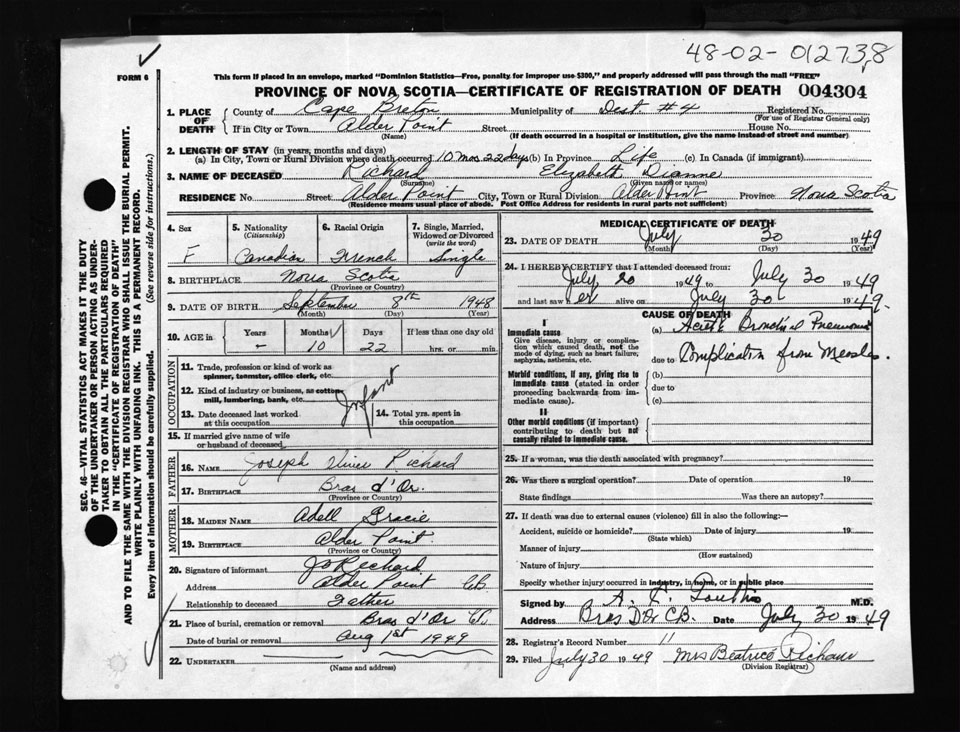 48-02-012738
FORM 6
This form if placed in an envelope, marked "Dominion Statistics—Free, penalty for improper use $300," and properly addressed will pass through the mail "FREE"
PROVINCE OF NOVA SCOTIA—CERTIFICATE OF REGISTRATION OF DEATH 004304
1. PLACE OF DEATH
County of Cape Breton Municipality of Dist. #4 Registered No.
(For use of Registrar General only)
If in City or Town Alder Point Street House No.
(Name) (If death occurred in a hospital or institution, give the name instead of street and number)
2. LENGTH OF STAY (in years, months and days)
(a) In City, Town or Rural Division where death occurred 10 mos 22 days (b) In Province Life (c) In Canada (if immigrant)
3. NAME OF DECEASED Richard Elizabeth Dianne
(Surname) (Given name or names)
RESIDENCE No. Alder Point City, Town or Rural Division Alder Point Province Nova Scotia
(Residence means usual place of abode. Post Office Address for residents in rural parts not sufficient)
4. Sex F
5. Nationality (Citizenship) Canadian
6. Racial Origin French
7. Single, Married, Widowed or Divorced (write the word) Single
8. BIRTHPLACE Nova Scotia
(Province or Country)
9. DATE OF BIRTH September 8th 1948
(Month) (Day) (Year)
10. AGE in Years Months Days If less than one day old
- 10 22 hrs. or min.
OCCUPATION
11. Trade, profession or kind of work as spinner, teamster, office clerk, etc.
12. Kind of industry or business, as cotton mill, lumbering, bank, etc.
Infant
13. Date deceased last worked at this occupation
14. Total yrs. spent in this occupation
15. If married give name of wife or husband of deceased
FATHER
16. NAME Joseph Richard
17. BIRTHPLACE Bras d'Or.
(Province or Country)
MOTHER
18. MAIDEN NAME Adell Gracie
19. BIRTHPLACE Alder Point
(Province or Country)
20. Signature of informant Jo Richard
Address Alder Point CB
Relationship to deceased Father
21. Place of burial, cremation or removal Bras d'Or
Date of burial or removal Aug 1st 1949
22. UNDERTAKER
(Name and address)
MEDICAL CERTIFICATE OF DEATH
23. DATE OF DEATH July 30 1949
(Month) (Day) (Year)
24. I HEREBY CERTIFY that I attended deceased from:
July 20 1949 to July 30 1949
and last saw her alive on July 30 1949.
CAUSE OF DEATH
I
Immediate cause
Give disease, injury or complication which caused death, not the mode of dying, such as heart failure, asphyxia, asthenia, etc.
(a) Acute Bronchial Pneumonia
due to Complication from Measles.
Morbid conditions, if any, giving rise to immediate cause (stated in order proceeding backwards from immediate cause).
(b)
due to
(c)
II
Other morbid conditions (if important) contributing to death but not causally related to immediate cause.
25. If a woman, was the death associated with pregnancy?
26. Was there a surgical operation? Date of operation 19
State findings Was there an autopsy?
27. If death was due to external causes (violence) fill in also the following:—
Accident, suicide or homicide? Date of injury 19
(State which)
Manner of injury
(How sustained)
Nature of injury
Specify whether injury occurred in industry, in home, or in public place
Signed by A. M.D.
Address Bras D'Or C.B. Date July 30 1949
28. Registrar's Record Number 11
29. Filed July 30 1949 Mrs Beatrice Richard
(Division Registrar)
SEC. 46—VITAL STATISTICS ACT MAKES IT THE DUTY
OF THE UNDERTAKER OR PERSON ACTING AS UNDER-
TAKER TO OBTAIN ALL THE PARTICULARS REQUIRED
IN THE "CERTIFICATE OF REGISTRATION OF DEATH"
AND TO FILE THE SAME WITH THE DIVISION REGISTRAR WHO SHALL ISSUE THE BURIAL PERMIT.
WRITE PLAINLY WITH UNFADING INK. THIS IS A PERMANENT RECORD.
Every item of information should be carefully supplied. (See reverse side for instructions.)